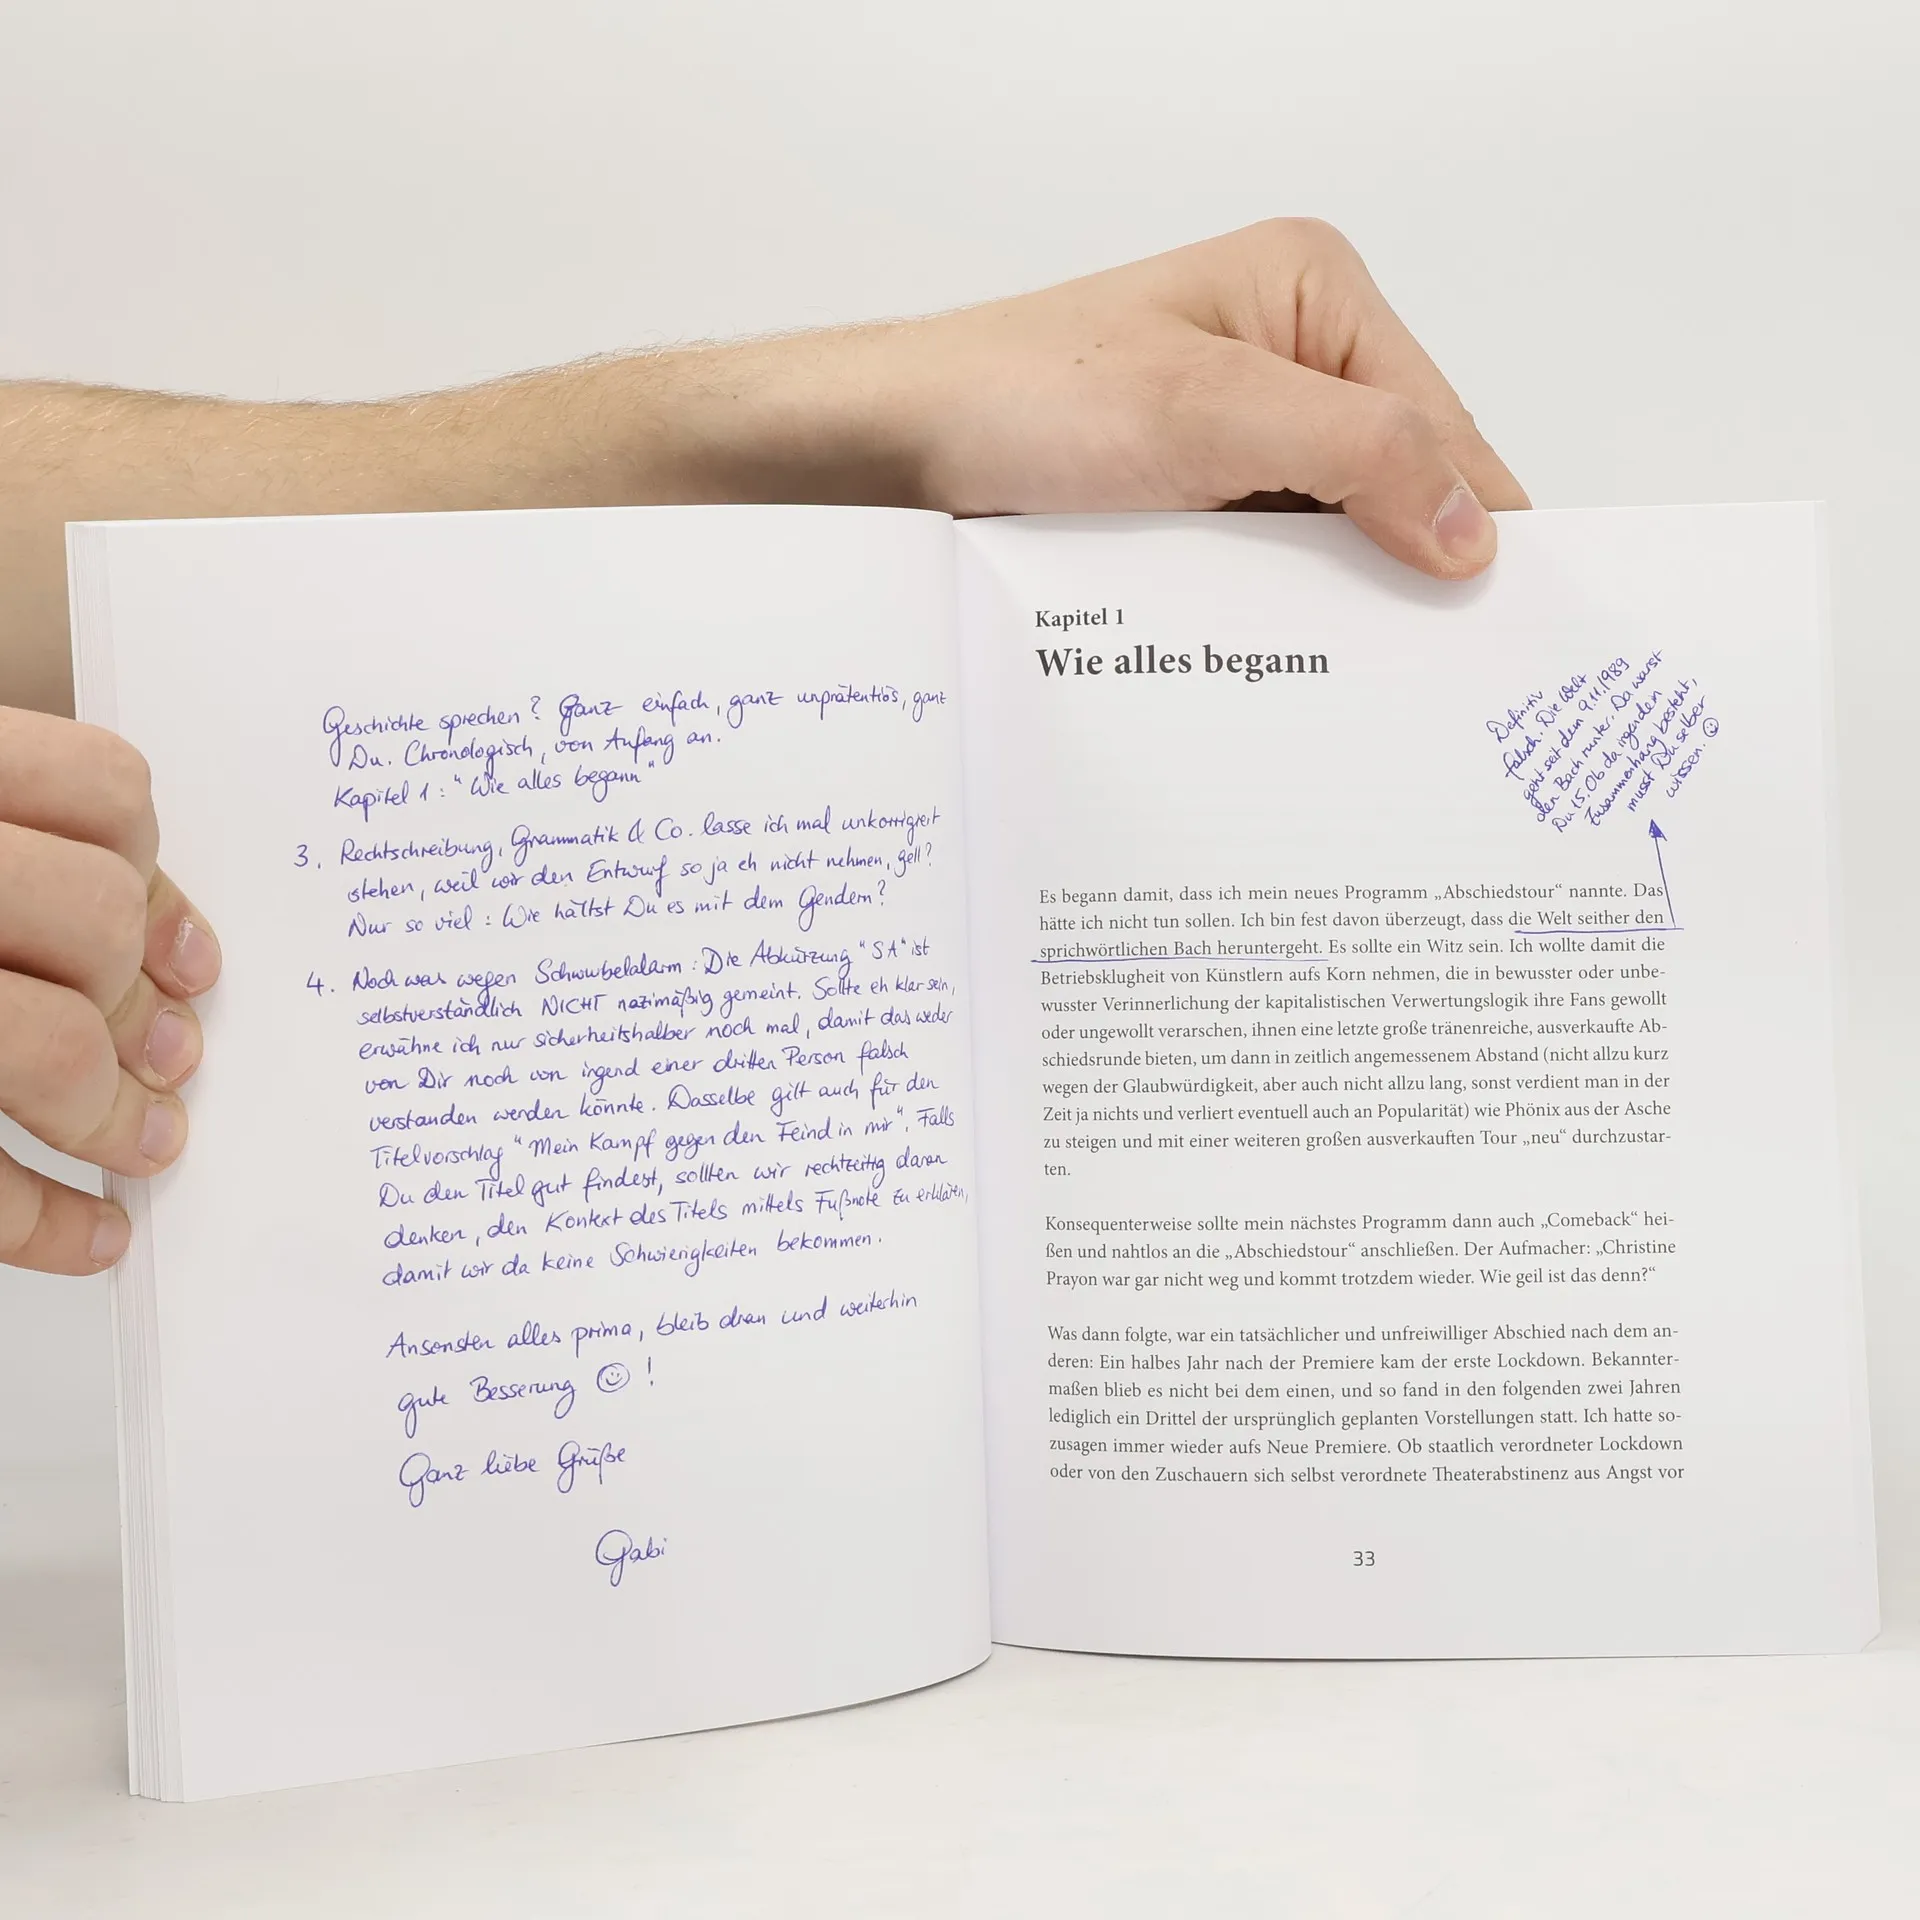 Geschichte sprechen? Ganz einfach, ganz unprätentiös, ganz
Du. Chronologisch, von Anfang an.
Kapitel 1: "Wie alles begann"
3. Rechtschreibung, Grammatik & Co. lasse ich mal unkorrigiert
stehen, weil wir den Entwurf so ja eh nicht nehmen, gell?
Nur so viel: Wie hältst Du es mit dem Gendern?
4. Noch was wegen Schwurbelalarm: Die Abkürzung "SA" ist
selbstverständlich NICHT nazimäßig gemeint. Sollte eh klar sein,
erwähne ich nur sicherheitshalber noch mal, damit das weder
von Dir noch von irgend einer dritten Person falsch
verstanden werden könnte. Dasselbe gilt auch für den
Titelvorschlag "Mein Kampf gegen den Feind in mir". Falls
Du den Titel gut findest, sollten wir rechtzeitig daran
denken, den Kontext des Titels mittels Fußnote zu erklären,
damit wir da keine Schwierigkeiten bekommen.
Ansonsten alles prima, bleib dran und weiterhin
gute Besserung ☺!
Ganz liebe Grüße
Gabi
Kapitel 1
Wie alles begann
Definitiv
falsch. Die Welt
geht seit dem 9.11.1989
den Bach runter. Da warst
Du 15. Ob da irgendein
Zusammenhang besteht,
musst Du selber
wissen. ☺
Es begann damit, dass ich mein neues Programm „Abschiedstour“ nannte. Das
hätte ich nicht tun sollen. Ich bin fest davon überzeugt, dass die Welt seither den
sprichwörtlichen Bach heruntergeht. Es sollte ein Witz sein. Ich wollte damit die
Betriebsklugheit von Künstlern aufs Korn nehmen, die in bewusster oder unbe-
wusster Verinnerlichung der kapitalistischen Verwertungslogik ihre Fans gewollt
oder ungewollt verarschen, ihnen eine letzte große tränenreiche, ausverkaufte Ab-
schiedsrunde bieten, um dann in zeitlich angemessenem Abstand (nicht allzu kurz
wegen der Glaubwürdigkeit, aber auch nicht allzu lang, sonst verdient man in der
Zeit ja nichts und verliert eventuell auch an Popularität) wie Phönix aus der Asche
zu steigen und mit einer weiteren großen ausverkauften Tour „neu“ durchzustar-
ten.
Konsequenterweise sollte mein nächstes Programm dann auch „Comeback“ hei-
ßen und nahtlos an die „Abschiedstour“ anschließen. Der Aufmacher: „Christine
Prayon war gar nicht weg und kommt trotzdem wieder. Wie geil ist das denn?“
Was dann folgte, war ein tatsächlicher und unfreiwilliger Abschied nach dem an-
deren: Ein halbes Jahr nach der Premiere kam der erste Lockdown. Bekannter-
maßen blieb es nicht bei dem einen, und so fand in den folgenden zwei Jahren
lediglich ein Drittel der ursprünglich geplanten Vorstellungen statt. Ich hatte so-
zusagen immer wieder aufs Neue Premiere. Ob staatlich verordneter Lockdown
oder von den Zuschauern sich selbst verordnete Theaterabstinenz aus Angst vor
33